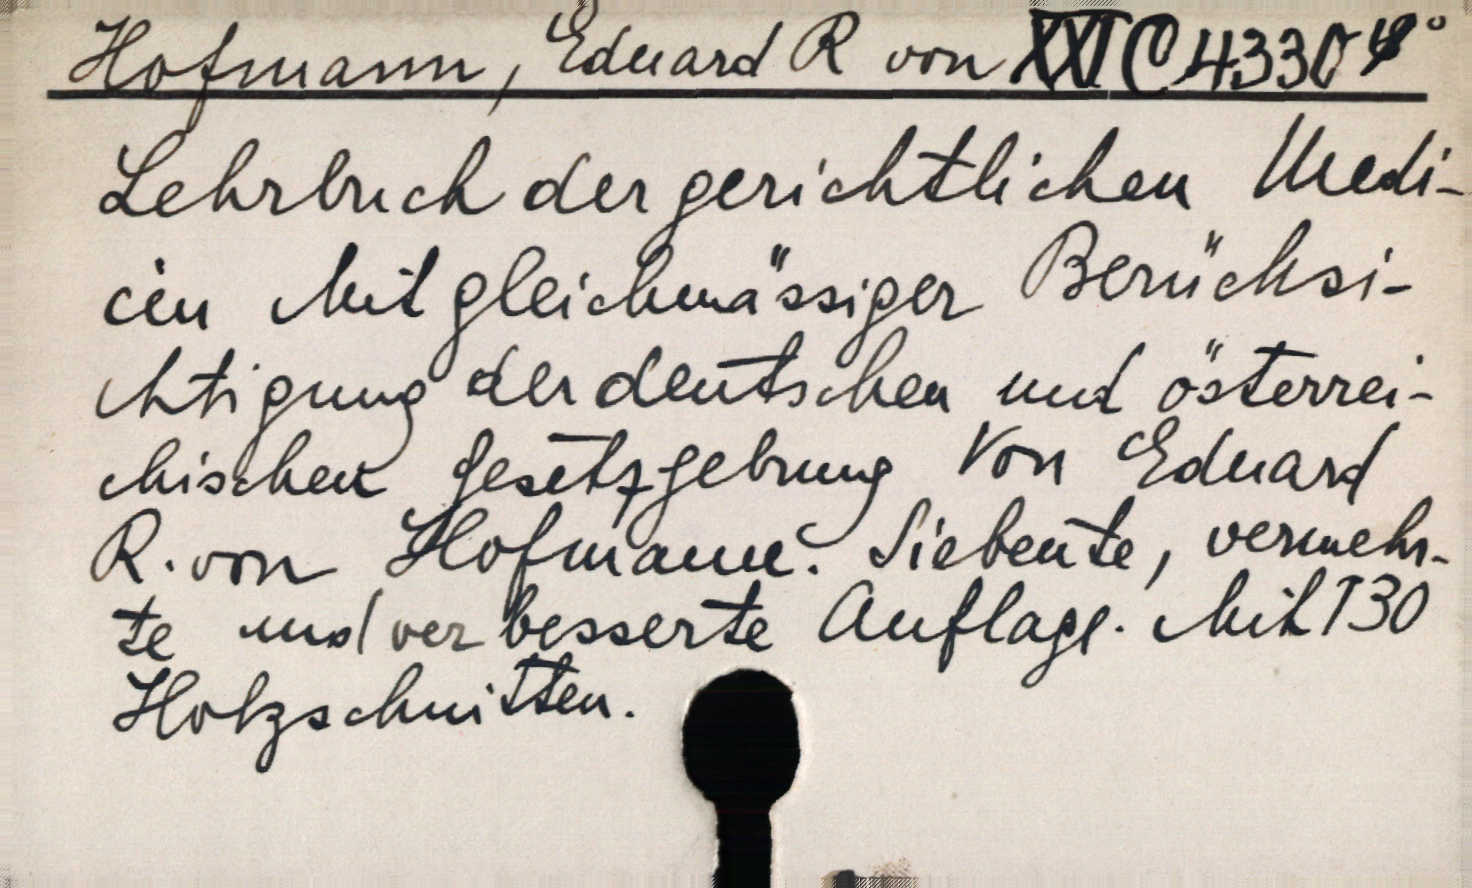 Hofmann, Eduard R von XXI C 4330 4°
Lehrbuch der gerichtlichen Medi-
cin Mit gleichmässiger Berücksi-
chtigung der deutschen und österrei-
chischen Gesetzgebung Von Eduard
R. von Hofmann. Siebente, vermehr-
te und verbesserte Auflage. Mit 130
Holzschnitten.